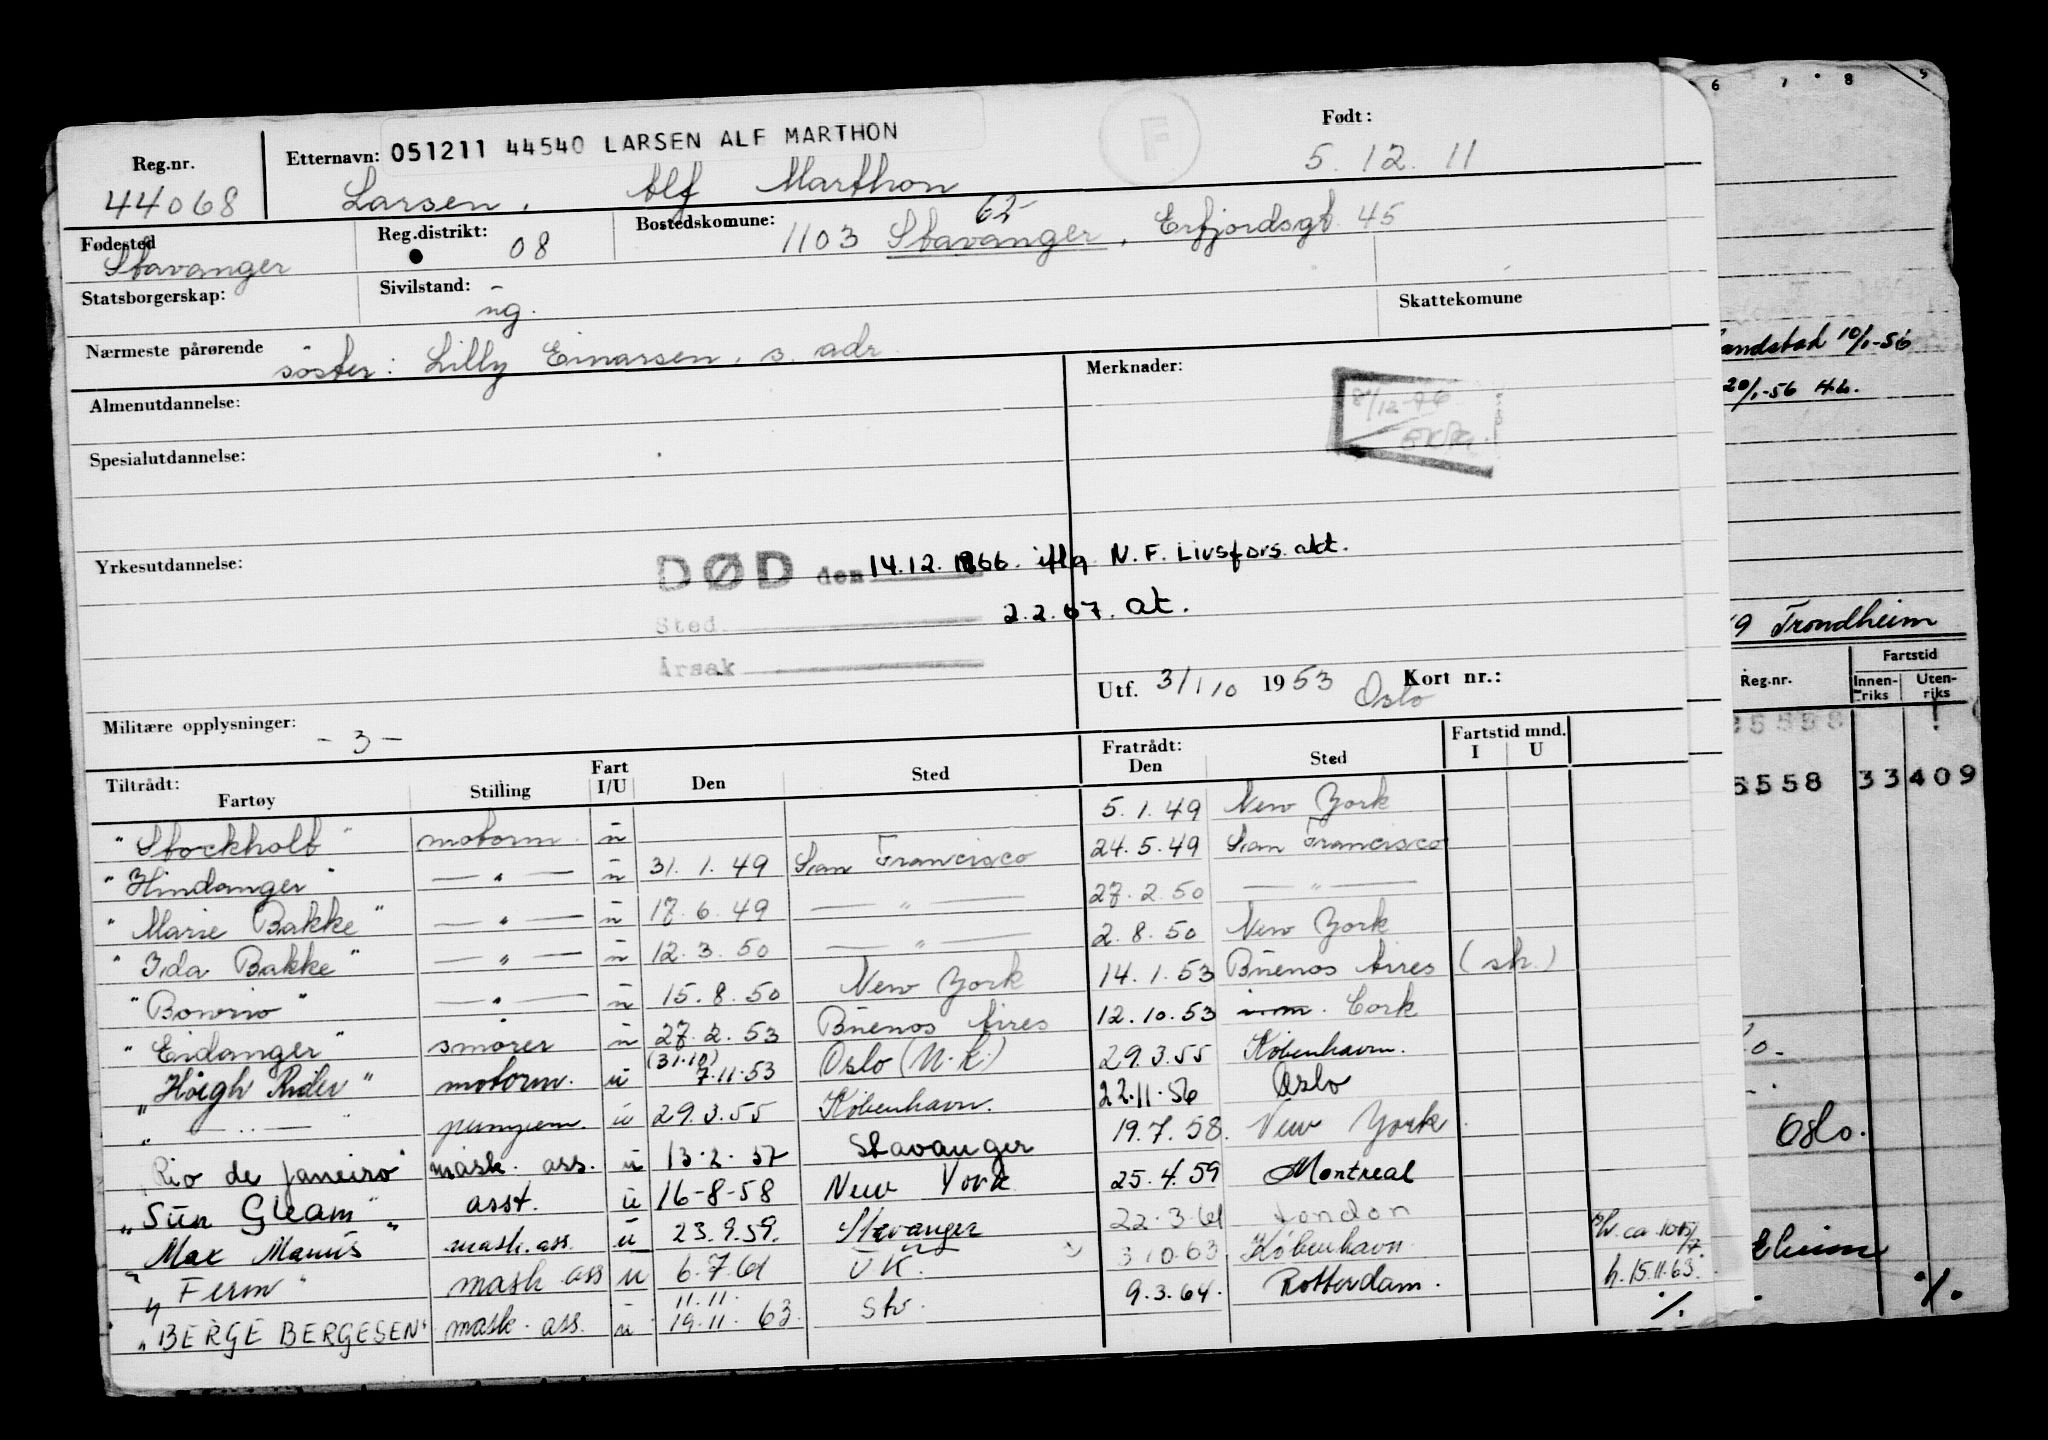 6 7 8 9
Reg.nr. Etternavn: 051211 44540 LARSEN ALF MARTHON F Født:
44068 Larsen, Alf Marthon 5.12.11
Fødested Stavanger Reg.distrikt: 08 Bostedskomune: 1103 Stavanger, 62 Erfjordsgt. 45
Statsborgerskap: Sivilstand: ug. Skattekomune
Nærmeste pårørende søster: Lilly Einarsen, s. adr.
Merknader:
Almenutdannelse:
Spesialutdannelse:
Yrkesutdannelse:
DØD den 14.12.1966. iflg. N.F. Livsfors. akt.
Sted 2.2.67. at.
Årsak
Utf. 31/10 1953 Kort nr.:
Oslo
Militære opplysninger: - 3 -
Tiltrådt: Fartøy Stilling Fart I/U Den Sted Fratrådt: Den Sted Fartstid mnd. I U
"Stockholt" motorm. u 5.1.49 New York
"Hindanger" — " — u 31.1.49 San Francisco 24.5.49 San Francisco
"Marie Bakke" — " — u 17.6.49 — " — 27.2.50 — " —
"Ida Bakke" — " — u 12.3.50 — " — 2.8.50 New York
"Bowrio" — " — u 15.8.50 New York 14.1.53 Buenos Aires (sk.)
"Eidanger" smører u 27.2.53 Buenos Aires 12.10.53 Cork
"Höegh Rider" motorm. u (31.10) 7.11.53 Oslo (N.k.) 29.3.55 København.
" — " — " pumpem. u 29.3.55 København. 22.11.56 Oslo
"Rio de Janeiro" mask. ass. u 13.2.57 Stavanger 19.7.58. New York
"Sun Gleam" asst. u 16-8-58 New York 25.4.59 Montreal
"Max Manus" mask. ass. u 23.9.59. Stavanger 22.3.61 London
"Ferm" mask ass u 6.7.61 U.K. 3.10.63 København
"BERGE BERGESEN" mask. ass. u 11.11. 19.11.63. Stv. 9.3.64. Rotterdam. h.15.11.63.
%
10/1-56
20/1-56 H.L.
Trondheim
Reg.nr. Fartstid
Innen-riks Uten-riks
5558 33 409
Oslo.
%.